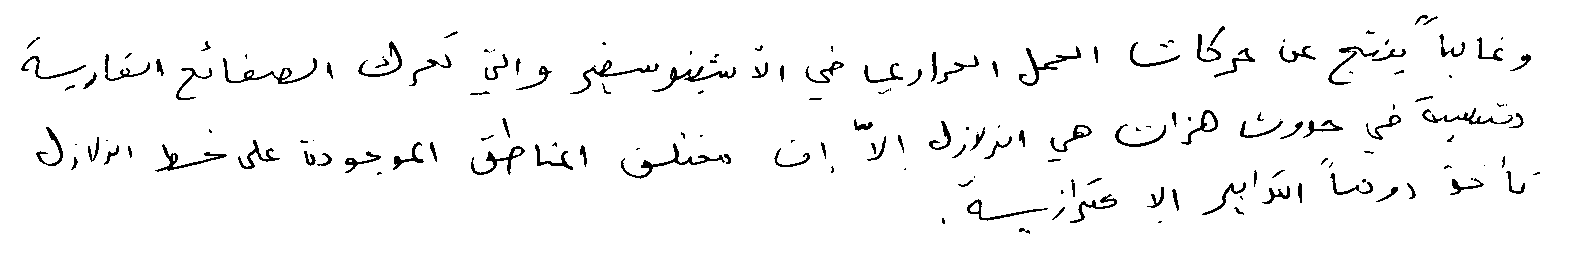 وغالباً ينتج عن حركات الحمل الحراري في الأسثينوسفير والتي تحرك الصفائح القارية
متسببة في حدوث هزات هي الزلازل إلاّ إن مختلف المناطق الموجودة على خط الزلازل
تأخذ دوماً التدابير الاحترازية.